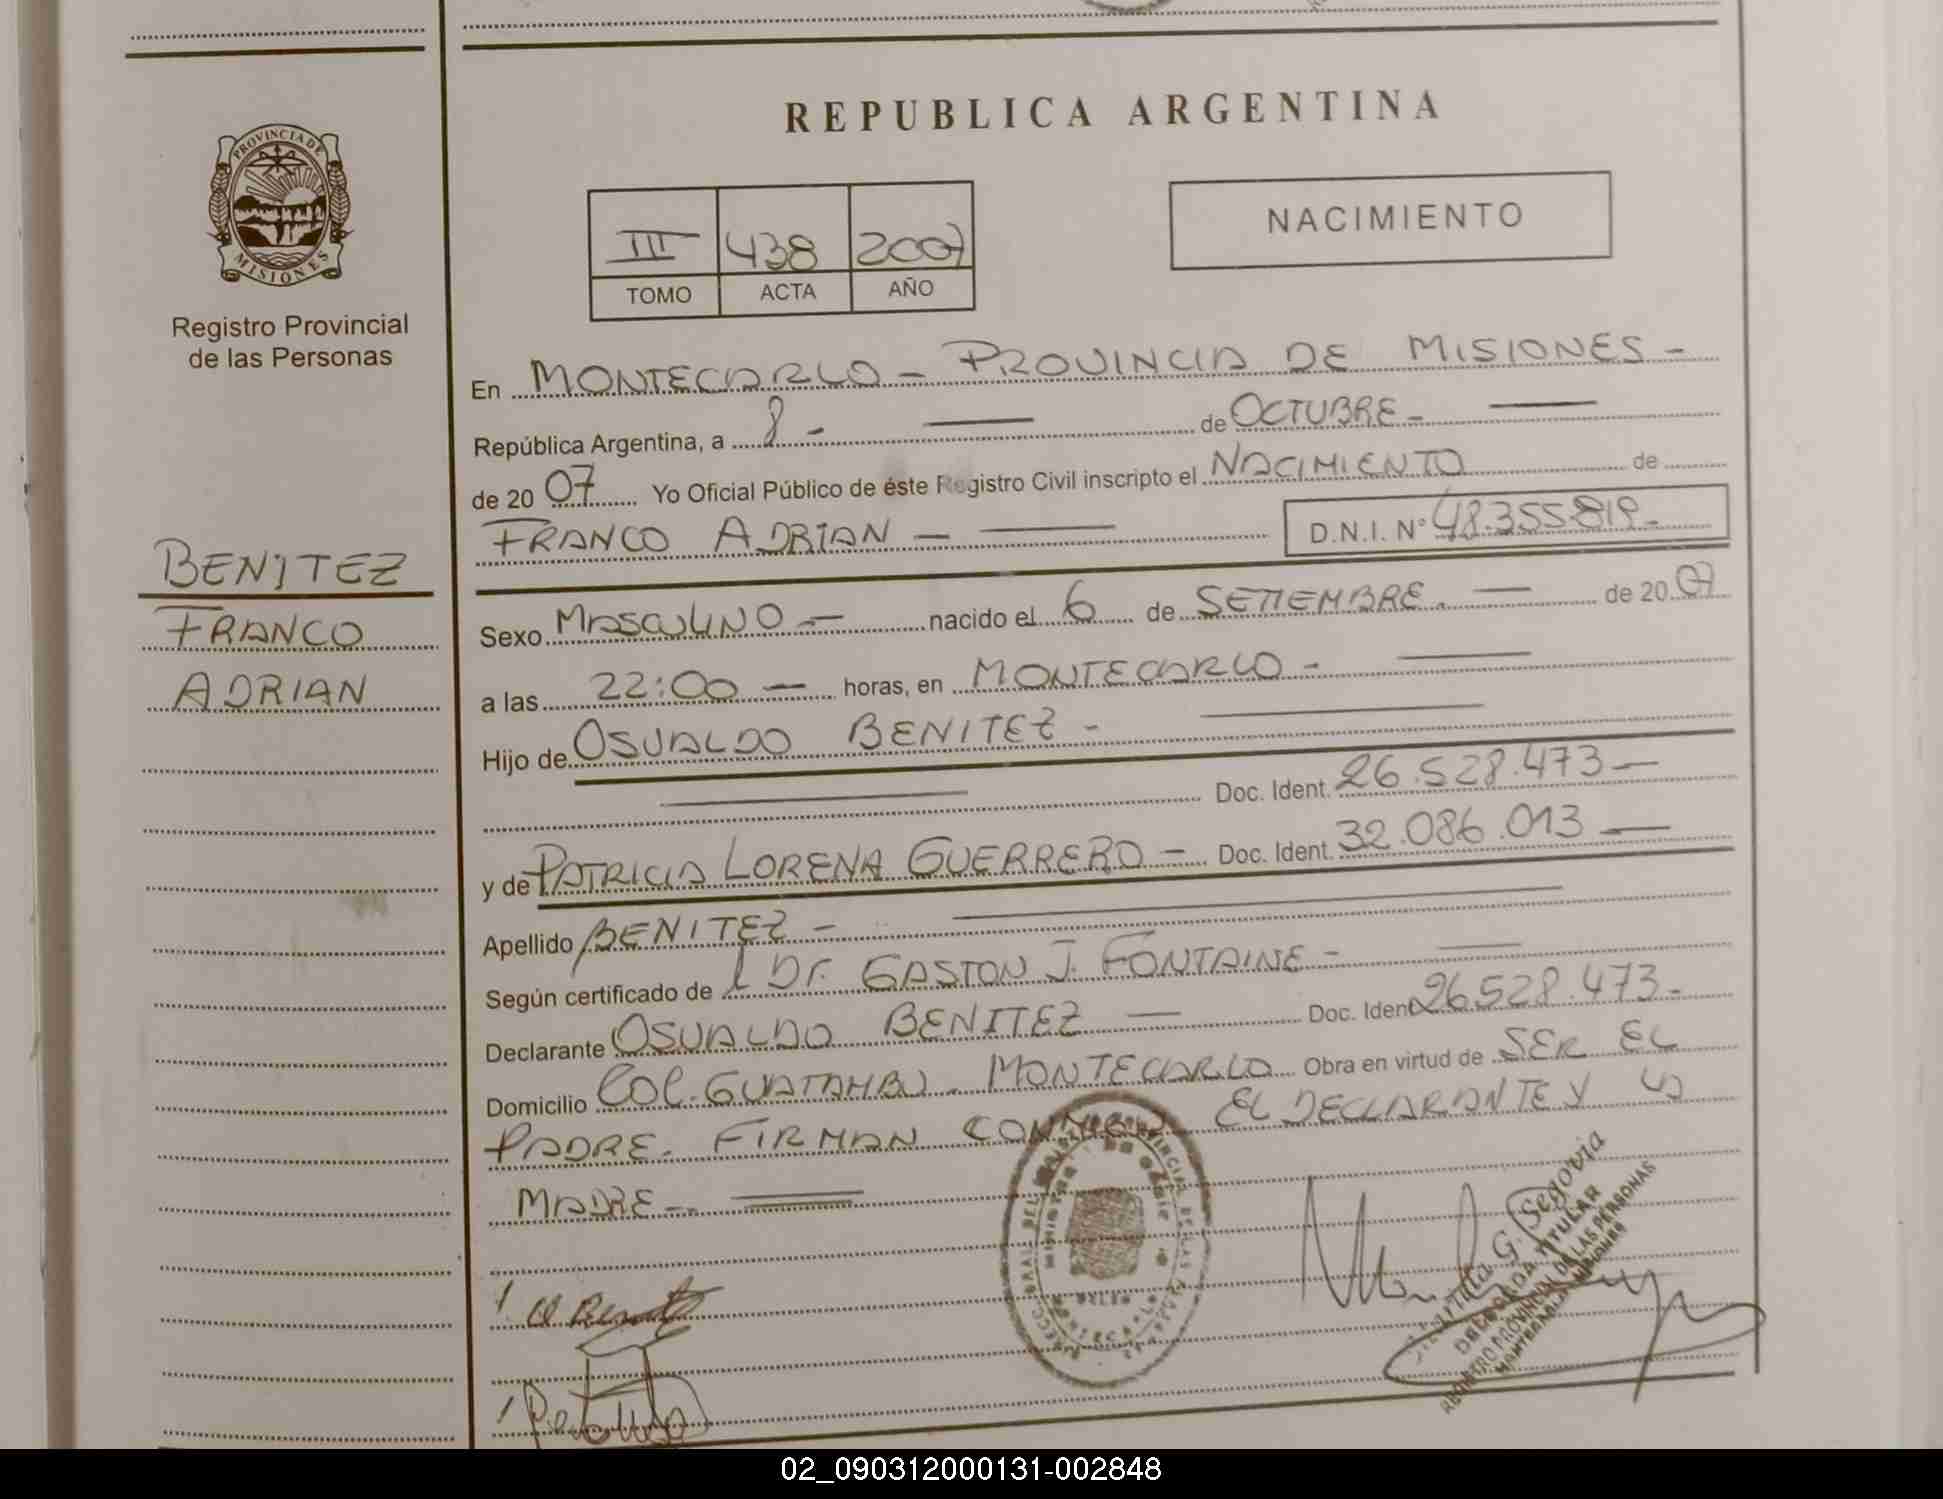 REPUBLICA ARGENTINA
PROVINCIA DE
MISIONES
Registro Provincial
de las Personas
III 438 2007
TOMO ACTA AÑO
NACIMIENTO
BENITEZ
FRANCO
ADRIAN
En MONTECARLO - PROVINCIA DE MISIONES -
República Argentina, a 8 - de OCTUBRE -
de 20 07 Yo Oficial Público de éste Registro Civil inscripto el NACIMIENTO de
FRANCO ADRIAN - D.N.I. N° 48.355.819 -
Sexo MASCULINO - nacido el 6 de SETIEMBRE. - de 20 07
a las 22:00 - horas, en MONTECARLO -
Hijo de OSVALDO BENITEZ -
Doc. Ident. 26.528.473 -
y de PATRICIA LORENA GUERRERO - Doc. Ident. 32.086.013 -
Apellido BENITEZ -
Según certificado de l Dr. GASTON J. FONTAINE -
Declarante OSVALDO BENITEZ - Doc. Ident. 26.528.473 -
Domicilio COL. GUATAMBU - MONTECARLO Obra en virtud de SER EL
PADRE. FIRMAN CONMIGO EL DECLARANTE Y LA
MADRE -
G. Segovia
DELEGADA TITULAR
REGISTRO PROVINCIAL DE LAS PERSONAS
02_090312000131-002848